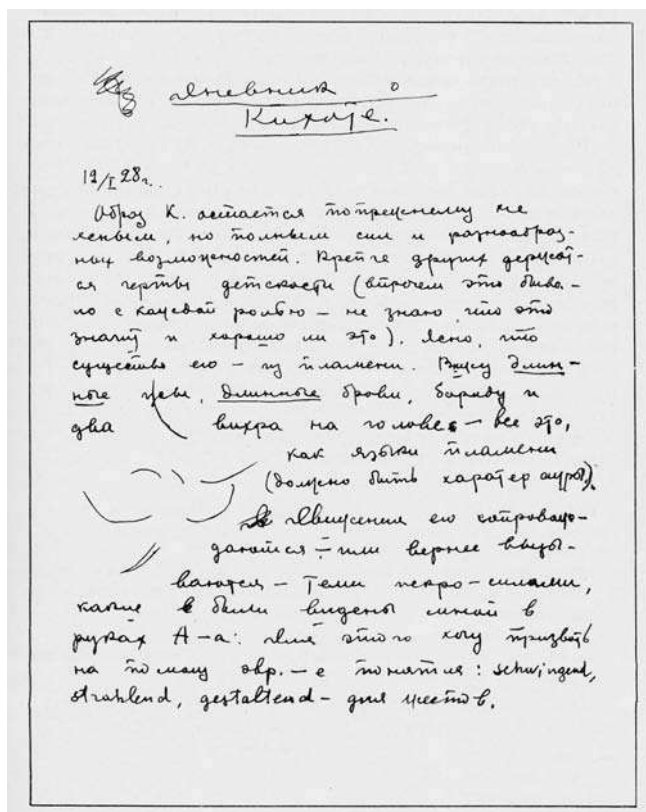 Дневник о
Кихоте.
19/I 28г.
Образ К. остается попрежнему не
ясным, но полным сил и разнообраз-
ных возможностей. Крепче других держат-
ся черты детскости (впрочем это быва-
ло с каждой ролью – не знаю что это
значит и хорошо ли это). Ясно, что
существо его – из пламени. Вижу длин-
ные усы, длинные брови, бороду и
два вихра на голове – все это,
как языки пламени
(должно быть характер ауры).
Движения его сопровож-
даются – или вернее вызы-
ваются – теми искро-силами,
какие были видены мной в
руках А-а: для этого хочу призвать
на помощь эвр.-е понятия: schwingend,
strahlend, gestaltend – для жестов.